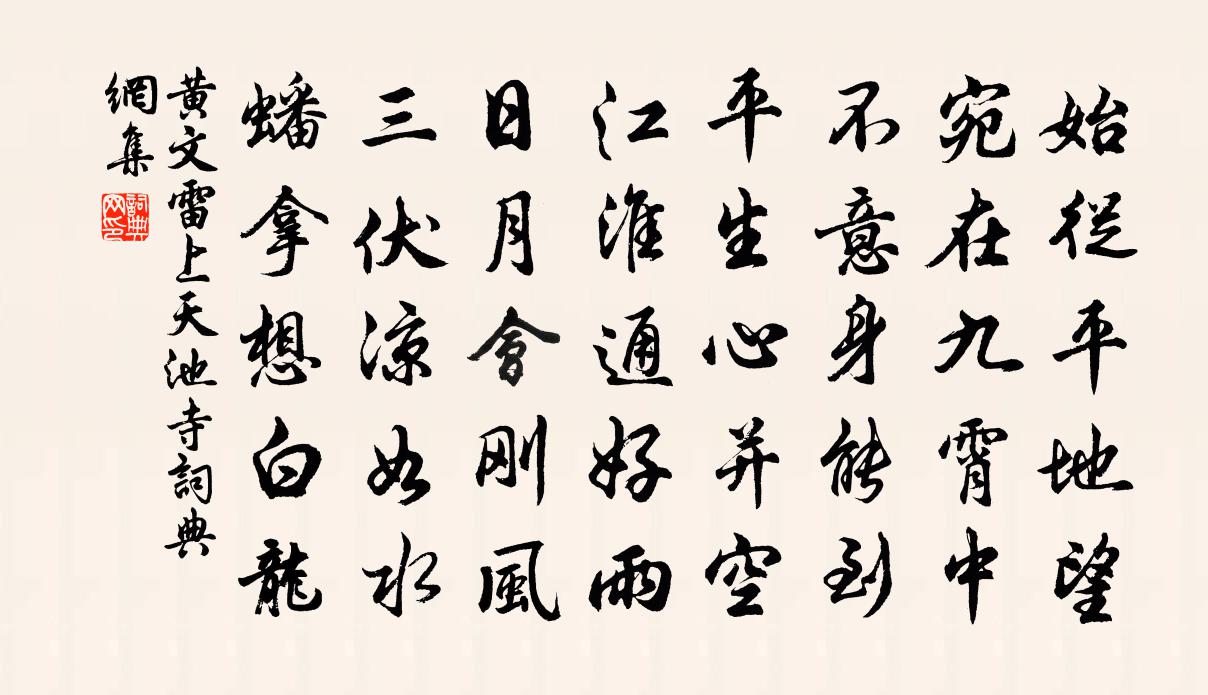 始從平地望
宛在九霄中
不意身能到
平生心并空
江淮通好雨
日月會剛風
三伏涼如水
蟠拿想白龍
黃文雷上天池寺詞典
網集
詞典
网印